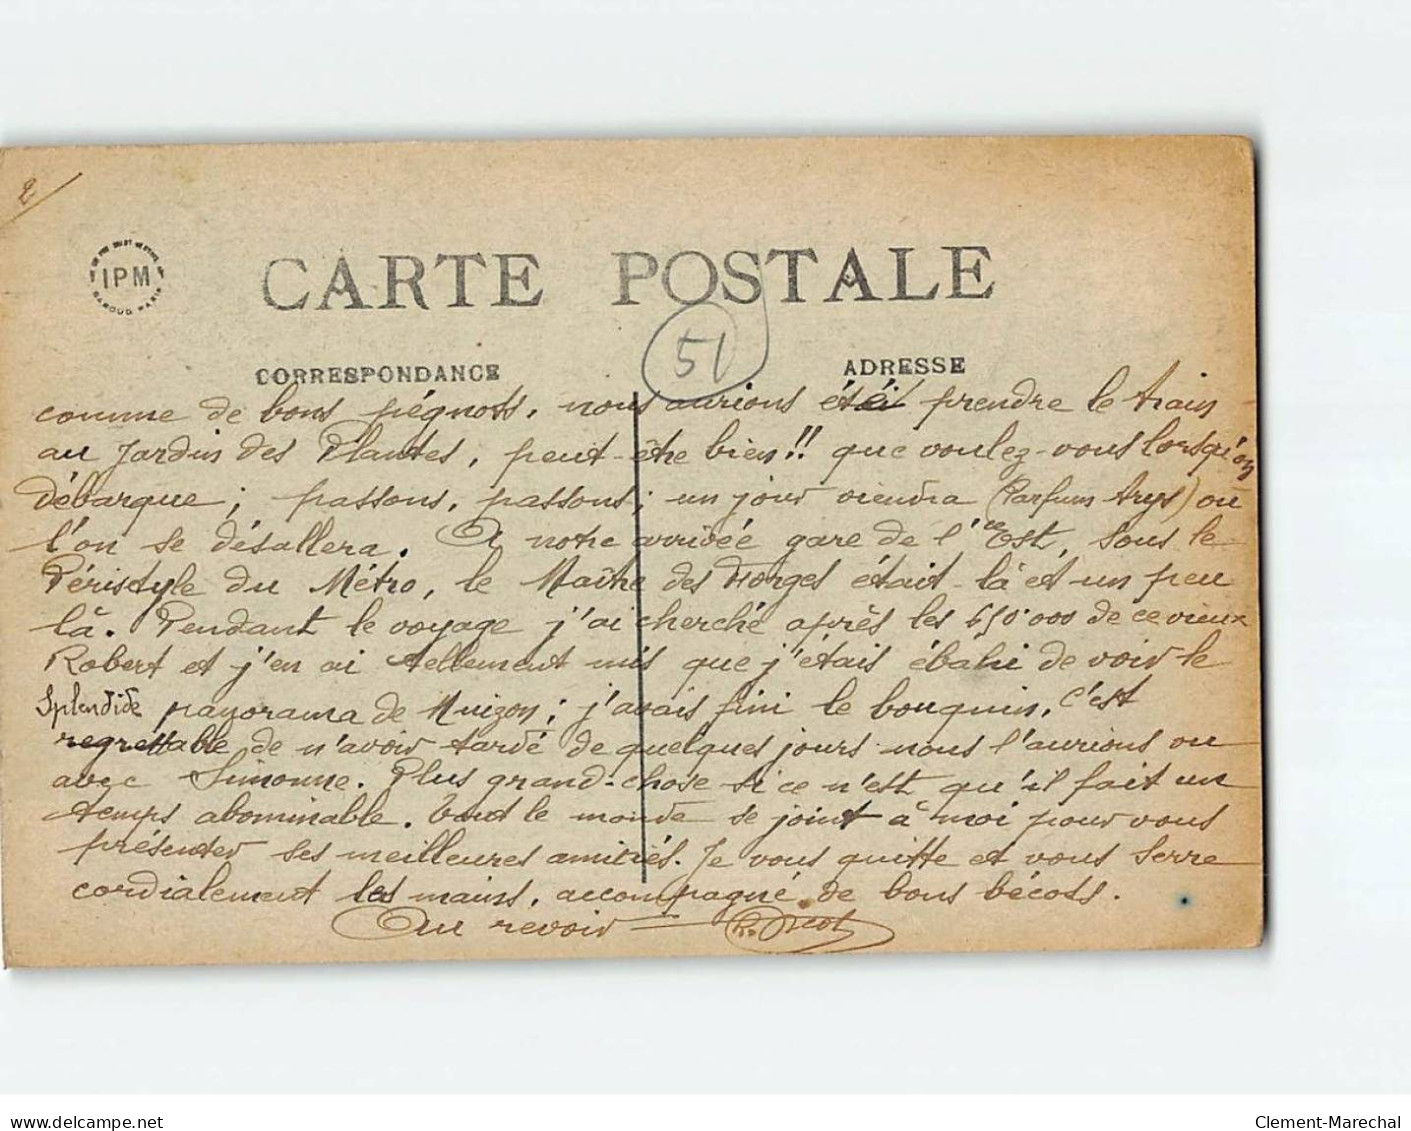 2
IPM
CARTE POSTALE
51
CORRESPONDANCE
ADRESSE
comme de bons pégnots, nous aurions été prendre le train
au Jardin des Plantes, peut-être bien!! que voulez-vous lorsqu'on
débarque; passons, passons; un jour viendra (Parfum Arys) où
l'on se désallera. A notre arrivée gare de l'Est, sous le
Péristyle du Métro, le Maître des Forges était-là et un peu
là. Pendant le voyage j'ai cherché après les 650.000 de ce vieux
Robert et j'en ai tellement mis que j'étais ébahi de voir le
Splendide panorama de Muizon; j'avais fini le bouquin. C'est
regrettable de n'avoir tardé de quelques jours nous l'aurions vu
avec Simonne. Plus grand-chose si ce n'est qu'il fait un
temps abominable. Tout le monde se joint à moi pour vous
présenter ses meilleures amitiés. Je vous quitte et vous serre
cordialement les mains, accompagné de bons bécots.
Au revoir
www.delcampe.net
Clement-Marechal